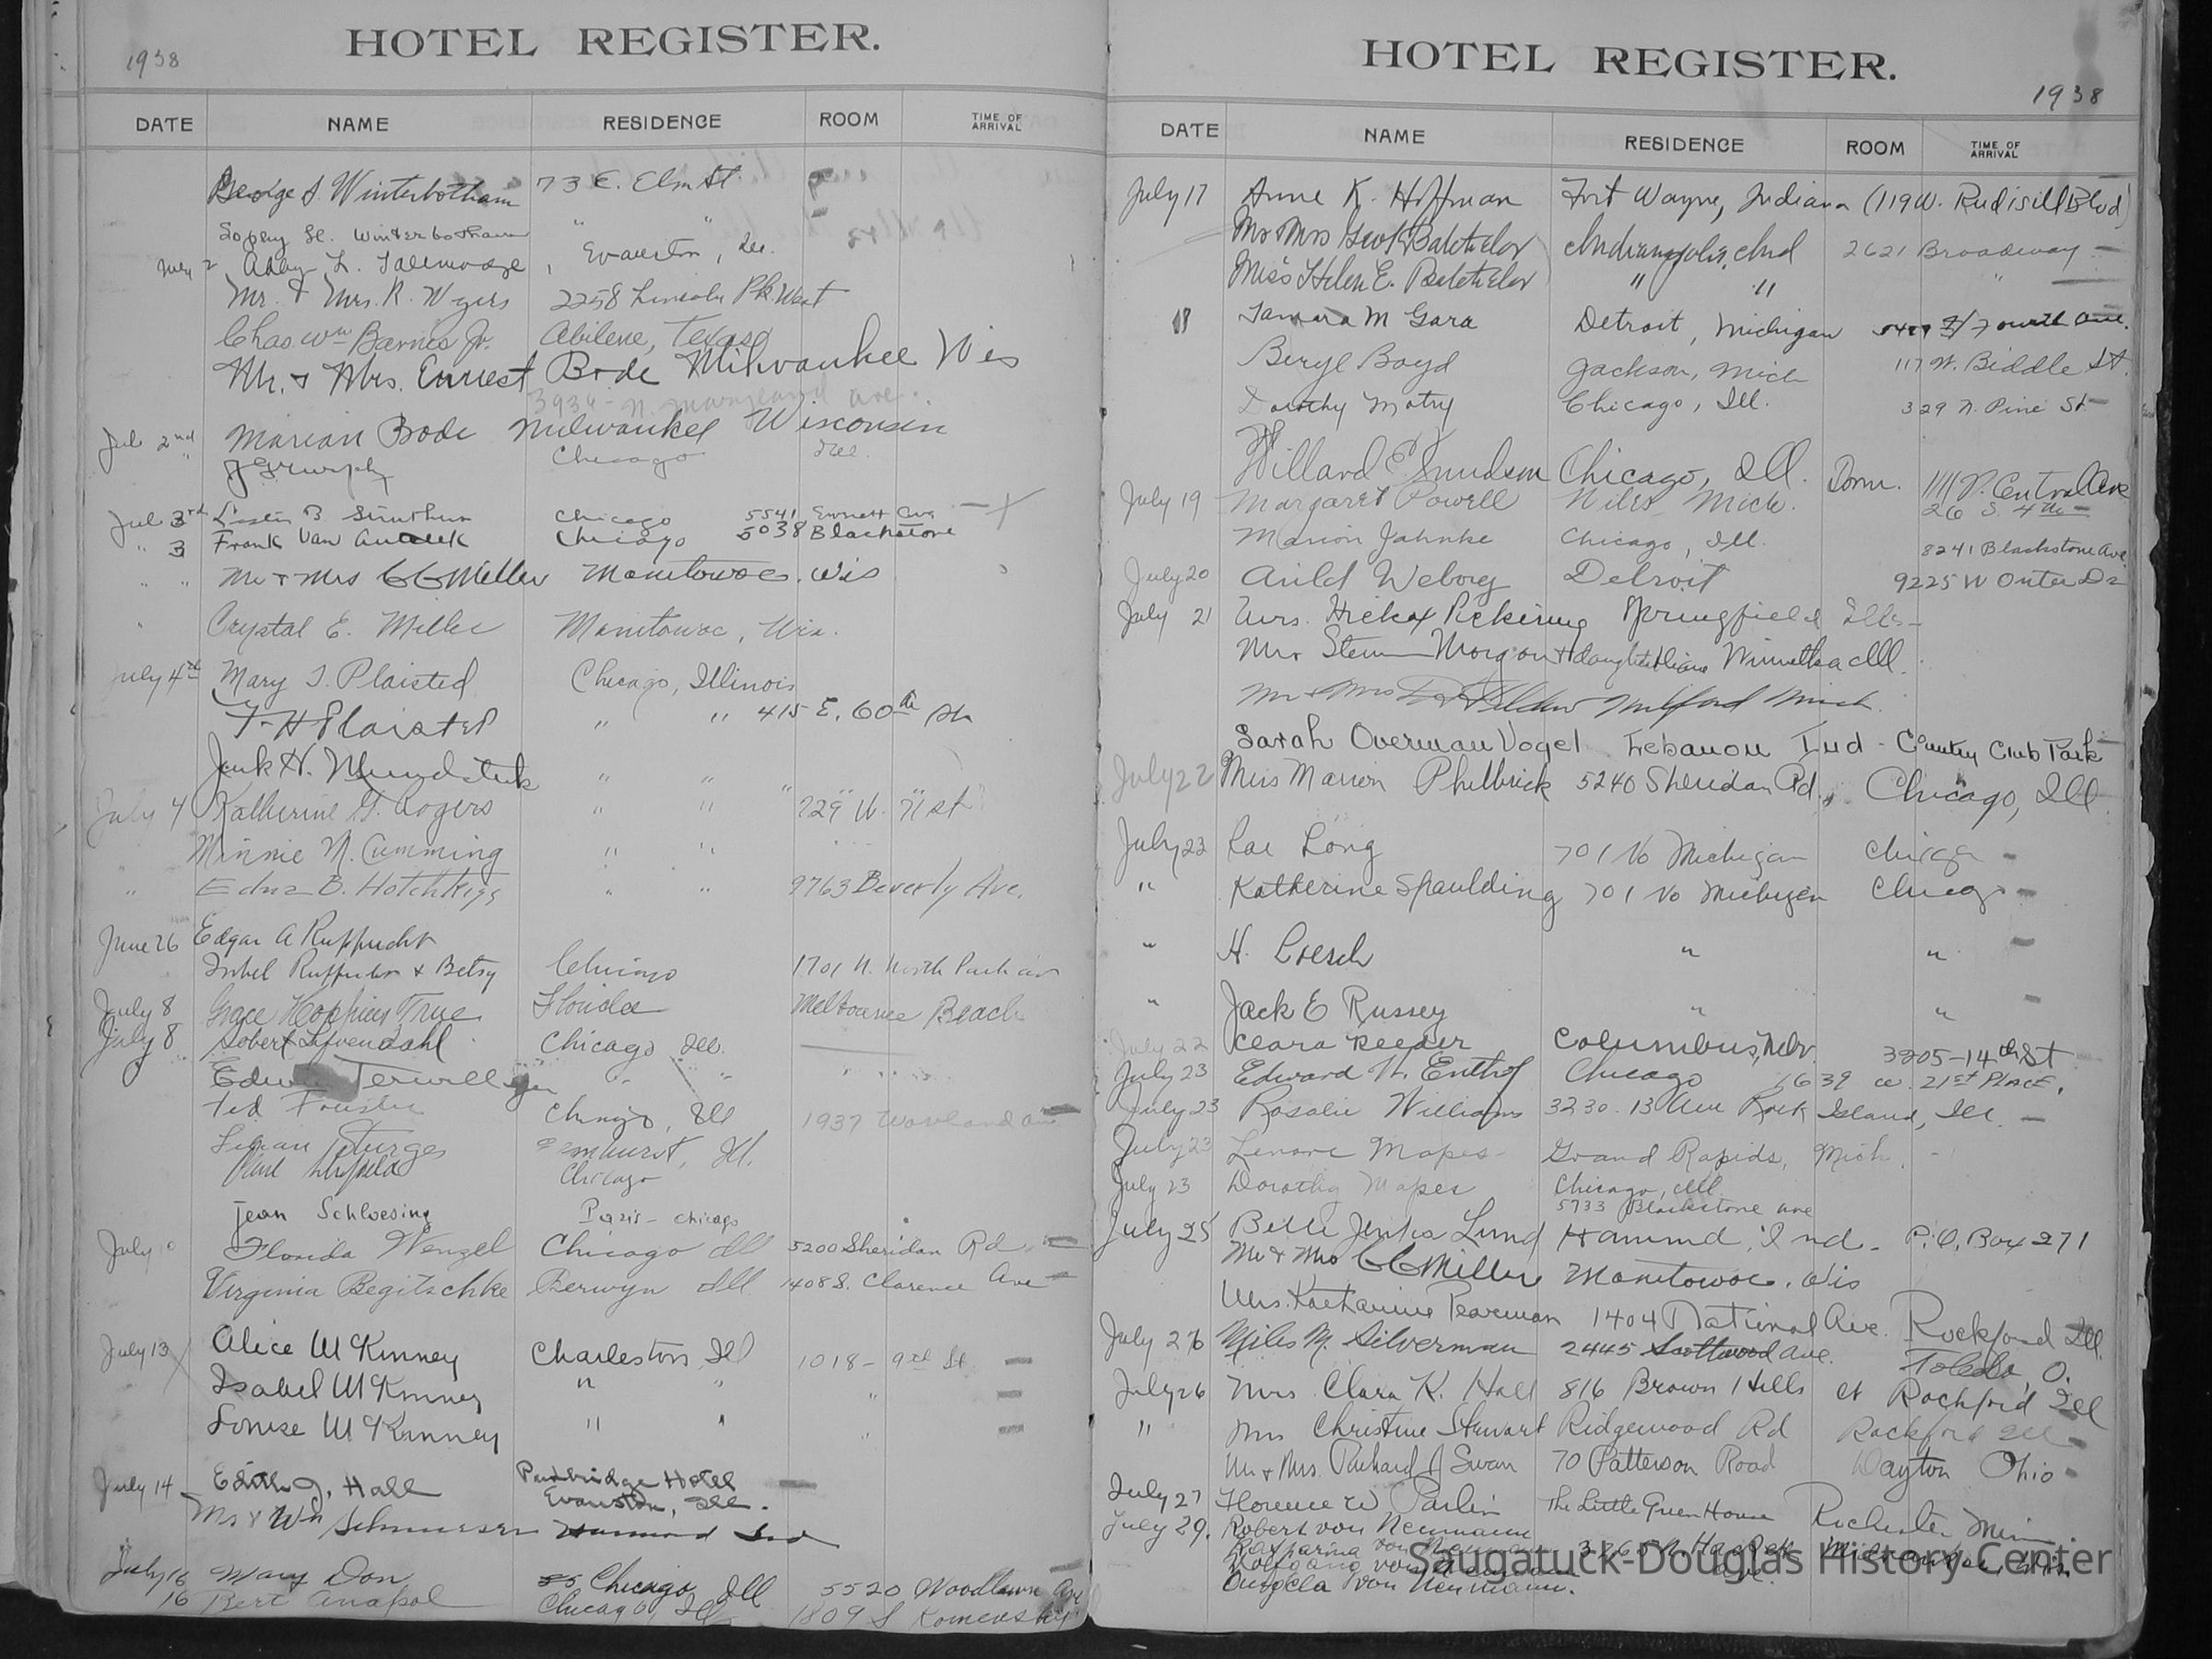 1938
HOTEL REGISTER.
DATE NAME RESIDENCE ROOM TIME OF ARRIVAL
George S. Winterbotham 73 E. Elm St.
Winterbotham " "
July 2 Abby L. Evanston, Ill.
Mr. & Mrs. R. Wyers 2258 Lincoln Pk. West
Chas. Wm Barnes Jr. Abilene, Texas
Mr. & Mrs. Ernest Bode Milwaukee Wis
3934 - N. Maryland Ave.
Jul 2nd Marian Bode Milwaukee Wisconsin
" Murphy Chicago Ill.
Jul 3rd Lester B Struthers Chicago 5541 Ave
" 3 Frank Van Chicago 5038 Blackstone
" " Mr & Mrs C C Miller Manitowoc. Wis
" Crystal E. Miller Manitowoc, Wis.
July 4th Mary T. Plaisted Chicago, Illinois
F. H Plaisted " " 415 E. 60th St
Jack H. " " "
July 4 Katherine G. Rogers " " 729 W. 71 st
Minnie N. Cumming " "
" Edna B. Hotchkiss " " 9763 Beverly Ave.
June 26 Edgar A Rupprecht
Isobel Rupprecht & Betsy Chicago 1701 N. North Park av
July 8 Grace Hoppins True Florida Melbourne Beach
July 8 Robert Lifvendahl Chicago Ill.
Terwilliger " "
Ted Chicago, Ill 1937
Lilian Sturges Elmhurst, Ill.
Chicago
jean Schloesing Paris - chicago
July Florida Wenzel Chicago Ill 5200 Sheridan Rd.
Virginia Begitschke Berwyn Ill 1408 S. Clarence Ave
July 13 Alice McKinney Charleston, Ill 1018 - 9th St
Isabel McKinney " " "
Louise McKinney " " "
July 14 Edith J. Hall Hotel
Evanston, Ill.
Mr & Wm Hammond Ind
July 16 Mary Don Chicago Ill 5520 Woodlawn Ave
16 Bert Anapol Chicago, Ill 1809 S Komensky
HOTEL REGISTER.
1938
DATE NAME RESIDENCE ROOM TIME OF ARRIVAL
July 17 Anne K. Hoffman Fort Wayne, Indiana (119 W. Rudisill Blvd)
Mr Mrs Geo K Batchelor Indianapolis, Ind 2621 Broadway -
Miss Helen E. Batchelor " " "
18 Tamara M Gara Detroit, Michigan Fourth Ave.
Beryl Boyd Jackson, Mich 117 W. Biddle St.
Dorothy Motry Chicago, Ill. 329 N. Pine St -
Willard E. Knudsen Chicago, Ill. Dorm. 1111 N. Central Ave
July 19 Margaret Powell Niles Mich. 26 S. 4th -
Marion Jahnke Chicago, Ill. 8241 Blackstone Ave.
July 20 Auild Weborg Detroit 9225 W Outer Dr
July 21 Mrs. Hickox Pickering Springfield Ills -
Mrs Stem Morgan & daughter Diane Winnetka Ill.
Mr & Mrs Milford Mich.
Sarah Overman Vogel Lebanon Ind - Country Club Park
July 22 Miss Marion Philbrick 5240 Sheridan Rd., Chicago, Ill
July 23 Rae Long 701 No Michigan Chicago -
" Katherine Spaulding 701 No Michigan Chicago -
" H. Loesch " " -
" Jack E Russey " " -
July 22 Clara Reeder Columbus, Nebr 3205 - 14th St
July 23 Edward H. Enthof Chicago 1639 w. 21st Place.
July 23 Rosalie Williams 3230 - 13 Ave Rock Island, Ill. -
July 23 Lenore Mapes - Grand Rapids, Mich. -
July 23 Dorothy Mapes Chicago, Ill
5733 Blackstone ave
July 25 Belle Jenks Lund Hammond, Ind. - P.O. Box 271
Mr & Mrs C C Miller Manitowoc. Wis
Mrs. Katharine Pearman 1404 National Ave. Rockford Ill.
July 26 Miles M. Silverman 2445 Scottwood Ave. Toledo O.
July 26 Mrs Clara K. Hall 816 Brown Hills ct Rockford Ill
" Mrs Christine Stewart Ridgewood Rd Rockford Ill -
Mr & Mrs. Richard J Swan 70 Patterson Road Dayton Ohio -
July 27 Florence W Parlin The Little Green House Rochester Minn.
July 29. Robert von Neumann
von Neumann 3265 N. Hackett
Wolfgang von Neumann Ave.
Angela von Neumann.
Saugatuck-Douglas History Center